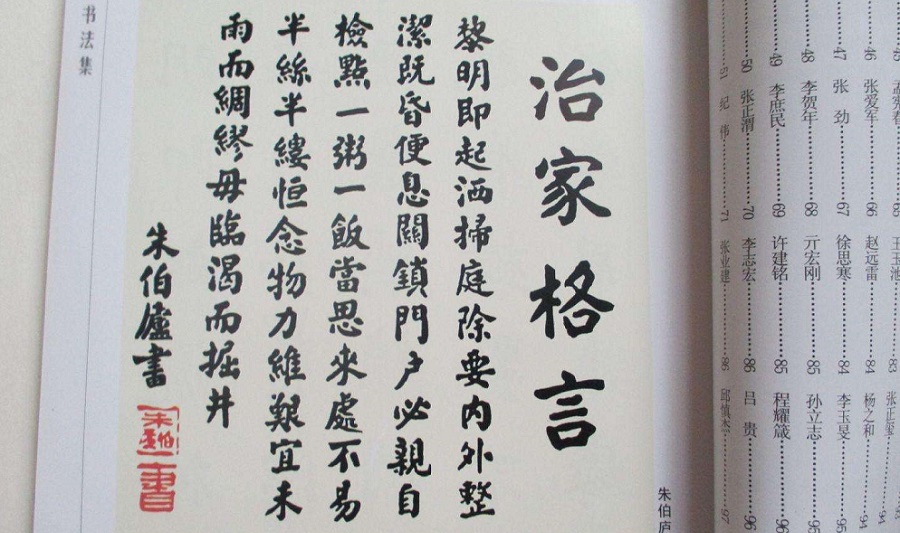 王玉池……83 张正玺……94
46 张爱军……66 赵远雷……84 杨之和……94
47 张 劲……67 徐思寒……84 李玉旻……95
48 李贺年……68 亓宏刚……85 孙立志……95
49 李庶民……69 许建铭……85 程耀箴……96
50 张正渭……70 李志宏……86 吕 贵……96
51 纪 伟……71 张业建……86 邱慎杰……97
朱伯庐
治家格言
黎明即起洒掃庭除要内外整
潔既昏便息關鎖門户必親自
檢點一粥一飯當思來處不易
半絲半縷恒念物力維艱宜未
雨而綢繆毋臨渴而掘井
朱伯廬書
书法集